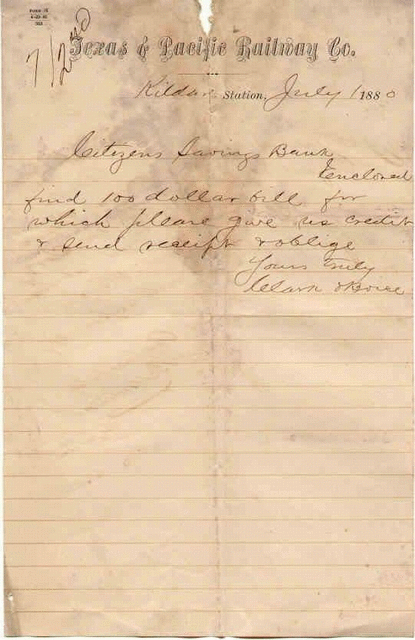 7/2nd
Texas & Pacific Railway Co.
Kildare Station, July 1 1880
Citizens Savings Bank
Enclosed
find 100 dollar bill for
which please give us credit
& send receipt & oblige
Yours Truly
Clark & Boice